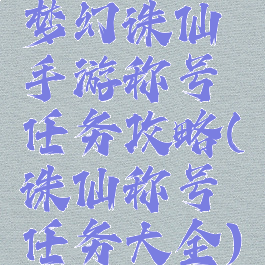 梦幻诛仙
手游称号
任务攻略(
诛仙称号
任务大全)